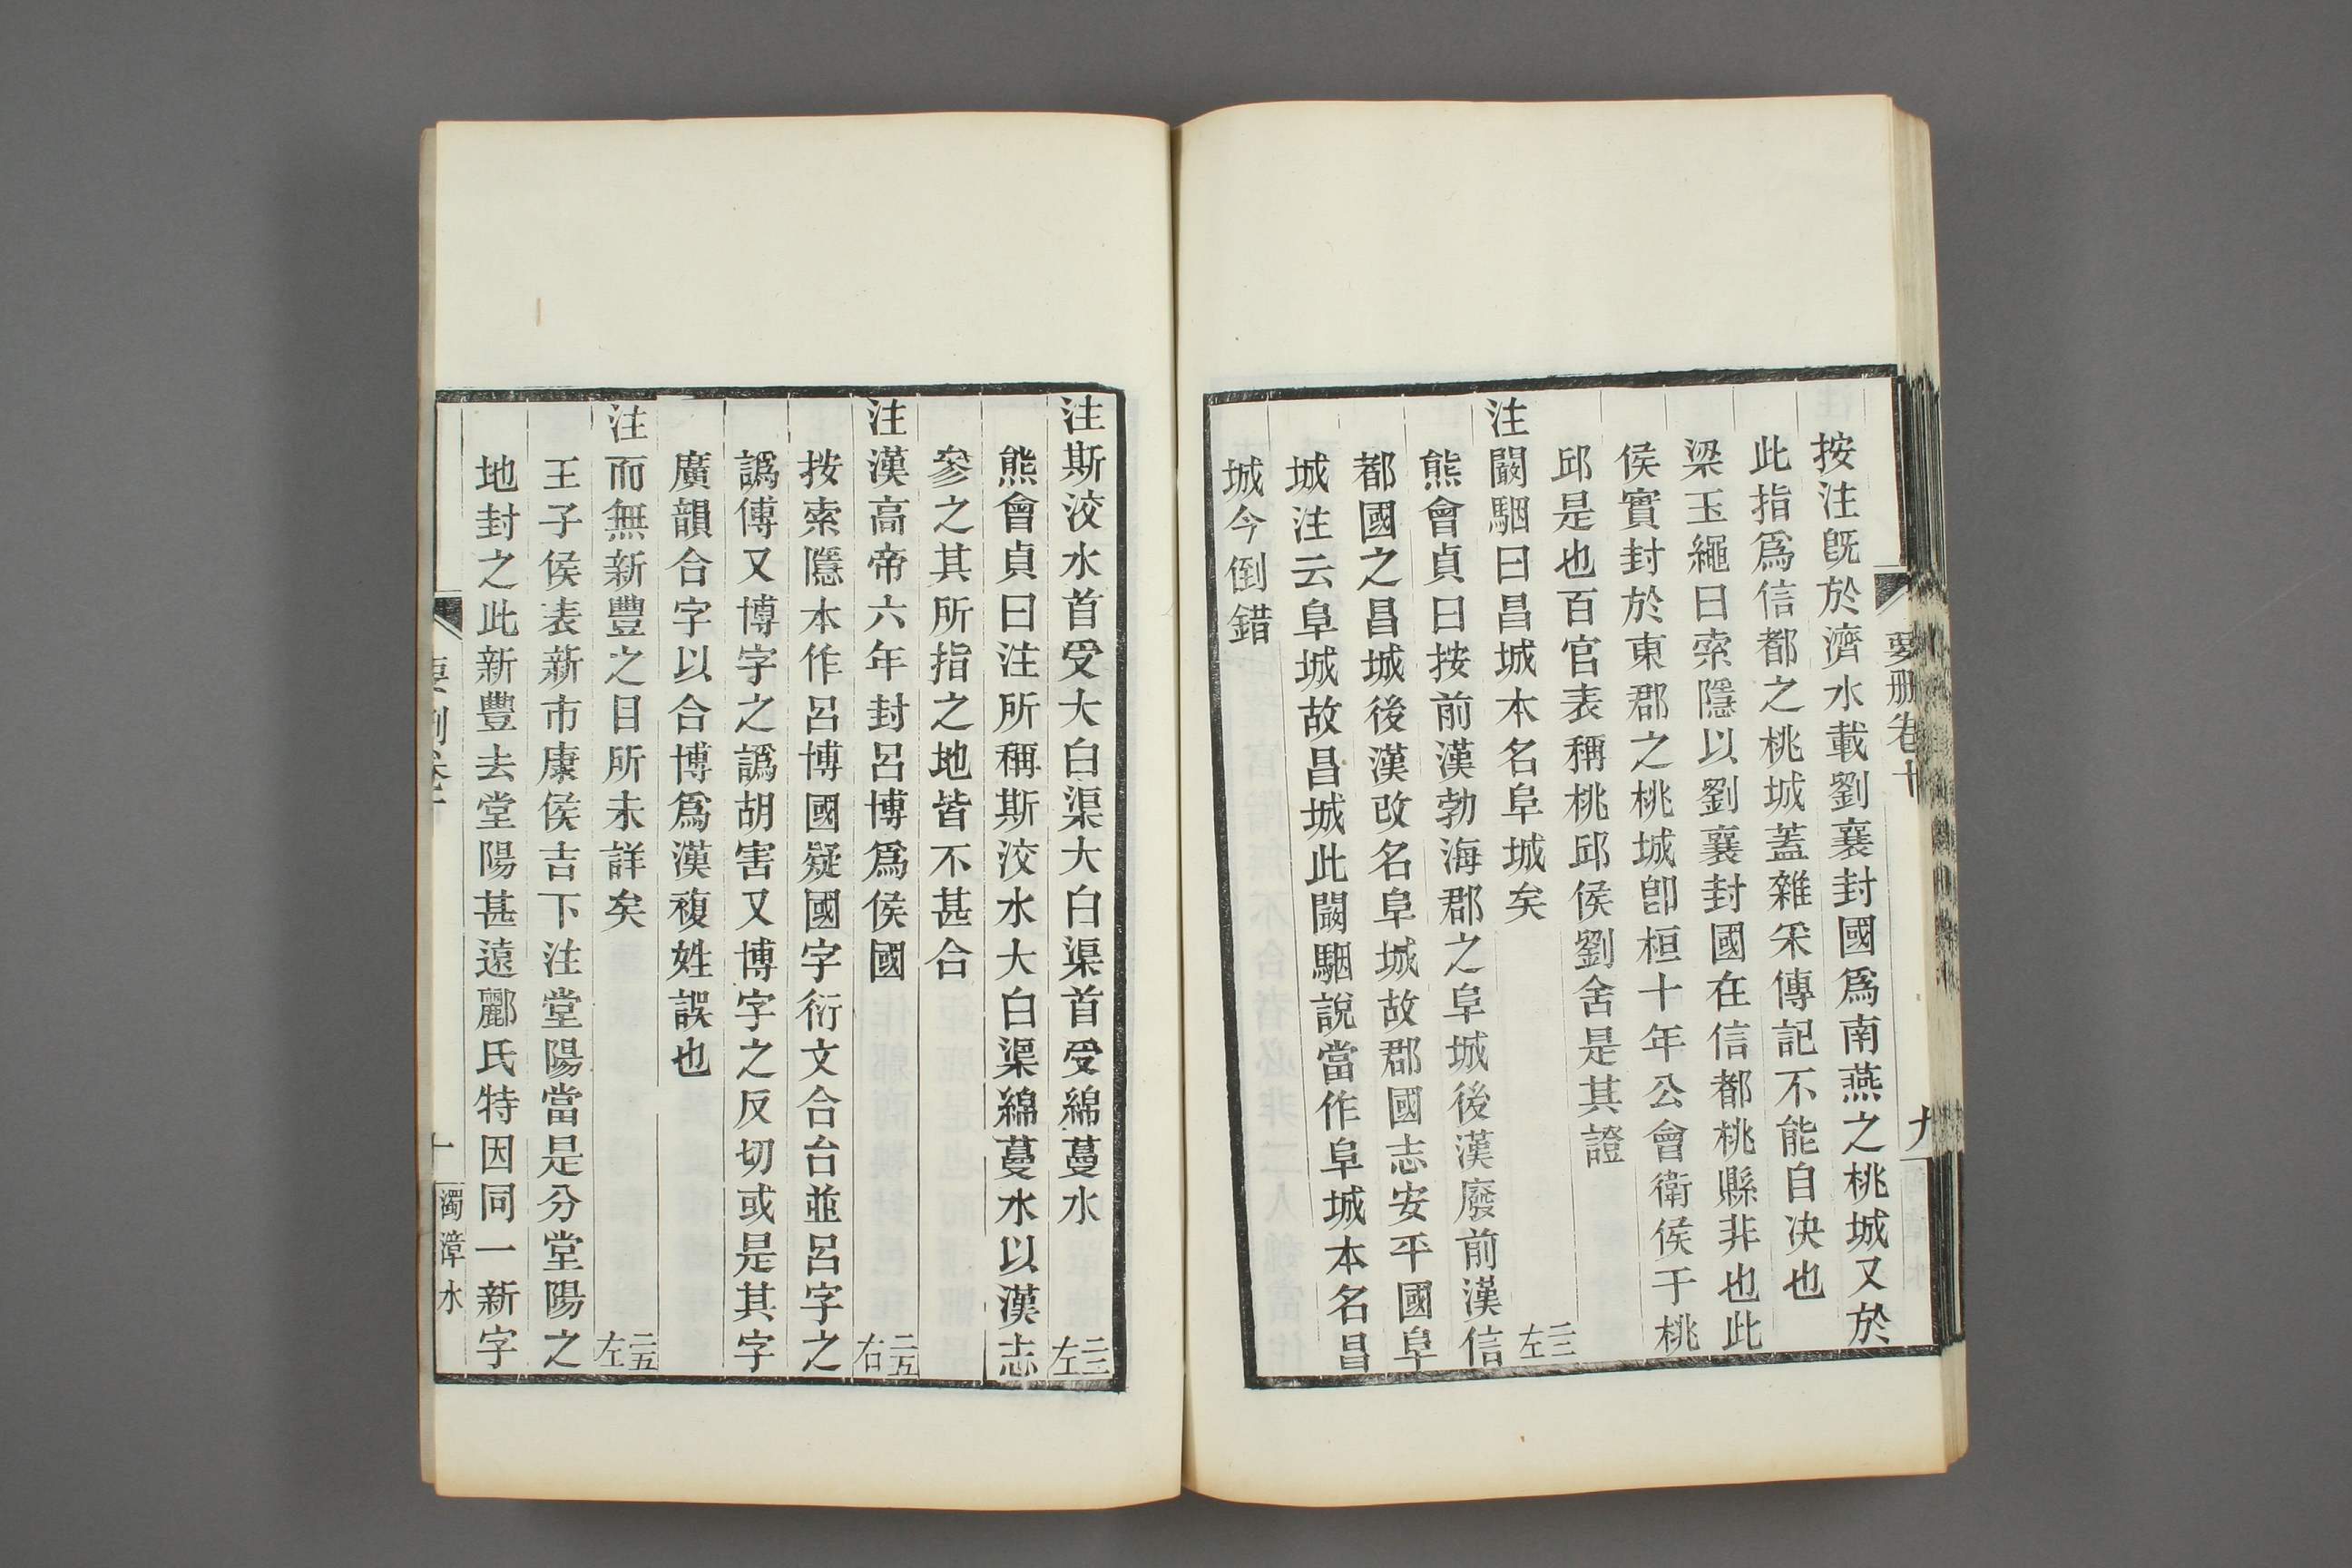 要刪卷十
九
按注旣於濟水載劉襄封國爲南燕之桃城又於
此指爲信都之桃城蓋雜采傳記不能自决也
梁玉繩曰索隱以劉襄封國在信都桃縣非也此
侯實封於東郡之桃城卽桓十年公會衛侯于桃
邱是也百官表稱桃邱侯劉舍是其證
注闞駰曰昌城本名阜城矣 二三左
熊會貞曰按前漢勃海郡之阜城後漢廢前漢信
都國之昌城後漢改名阜城故郡國志安平國阜
城注云阜城故昌城此闞駰說當作阜城本名昌
城今倒錯
注斯洨水首受大白渠大白渠首受綿蔓水 二三左
熊會貞曰注所稱斯洨水大白渠綿蔓水以漢志
參之其所指之地皆不甚合
注漢高帝六年封呂博爲侯國 二五右
按索隱本作呂博國疑國字衍文合台並呂字之
譌傅又博字之譌胡害又博字之反切或是其字
廣韻合字以合博爲漢複姓誤也
注而無新豐之目所未詳矣 二五左
王子侯表新市康侯吉下注堂陽當是分堂陽之
地封之此新豐去堂陽甚遠酈氏特因同一新字
十
濁漳水